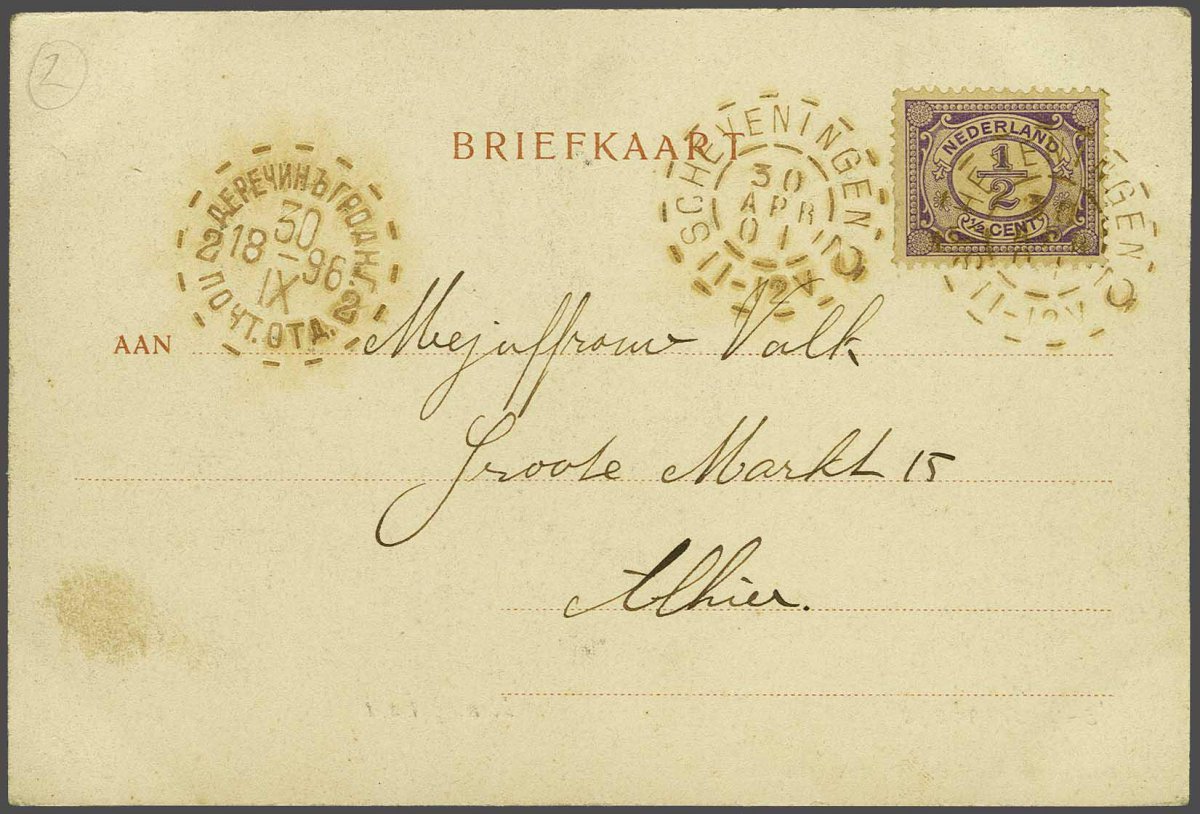 2
BRIEFKAART
SCHEVENINGEN
30
APR
01
11-12V
NEDERLAND
1/2
½ CENT
ДЕРЕЧИНЪ ГРОДН.Г.
30
18-96
IX
2 ПОЧТ.ОТД. 2
AAN Mejuffrouw Valk
Groote Markt 15
Alhier.